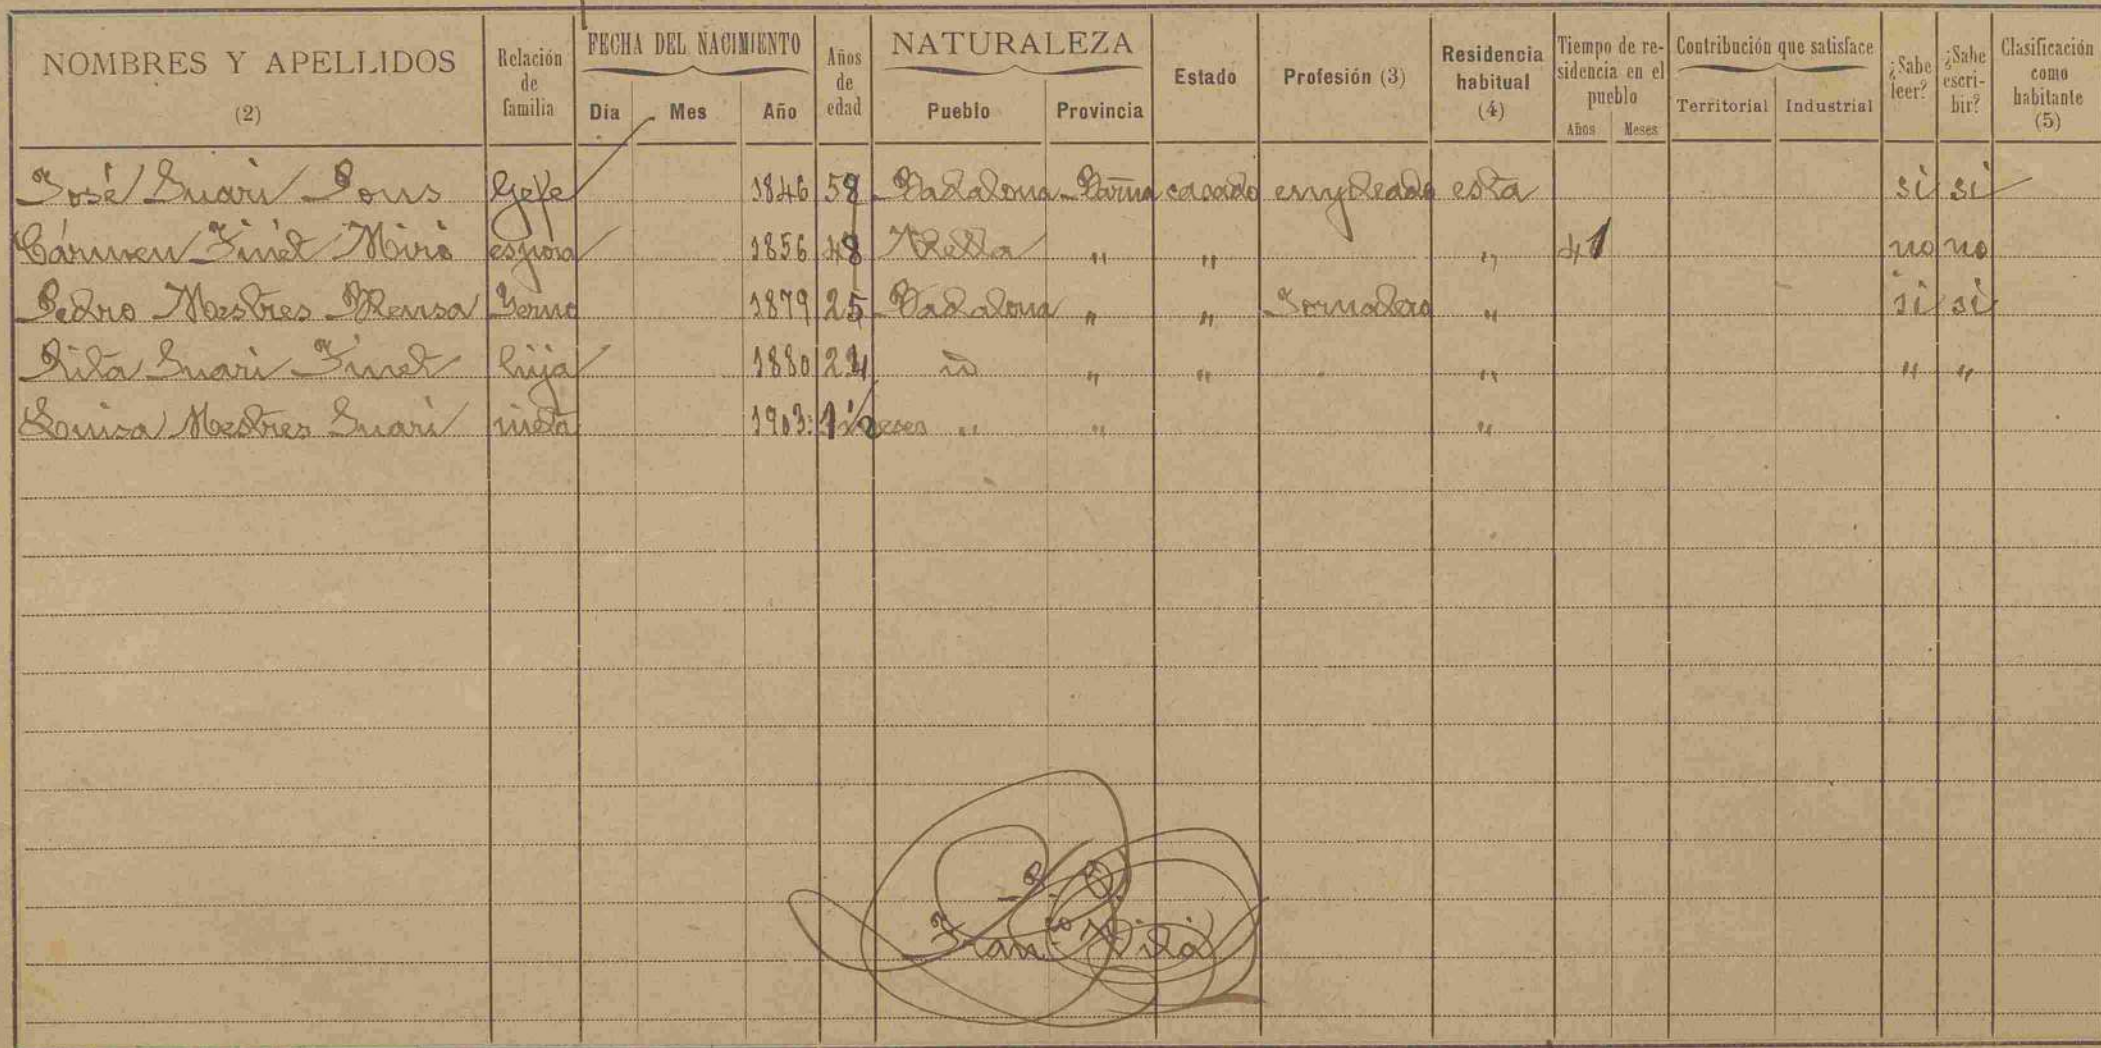 NOMBRES Y APELLIDOS (2) Relación de familia FECHA DEL NACIMIENTO Día Mes Año Años de edad NATURALEZA Pueblo Provincia Estado Profesión (3) Residencia habitual (4) Tiempo de residencia en el pueblo Años Meses Contribución que satisface Territorial Industrial ¿Sabe leer? ¿Sabe escribir? Clasificación como habitante (5)
José Suari Pons Gefe 1846 58 Badalona Barna casado empleado esta si si
Cármen Finet Miró esposa 1856 48 " " " 41 no no
Pedro Mestres Mensa Yerno 1879 25 Badalona " " Jornalero " si si
Rita Suari Finet hija 1880 24 id " " " " "
Luisa Mestres Suari nieta 1903 " " "
P. O.
Franco Vilá